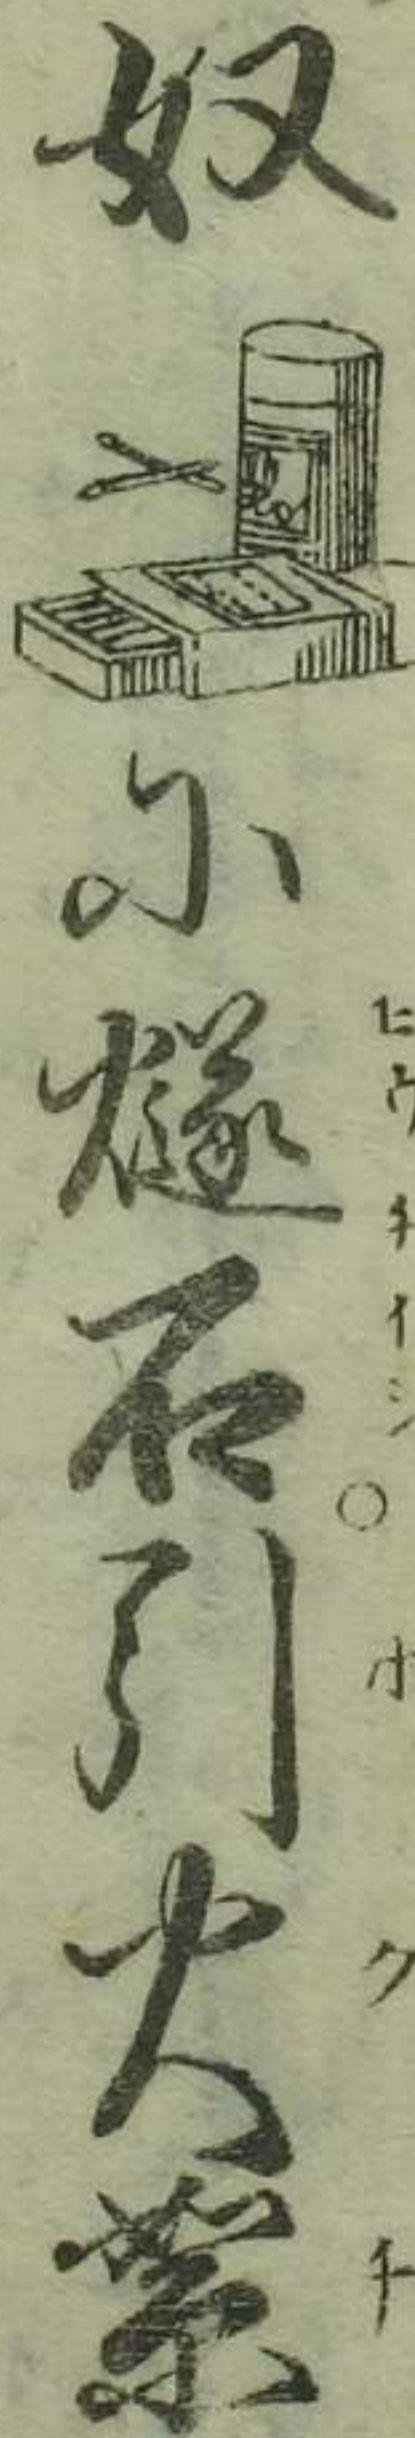 奴小燧石引火
ヒウチイシ○ホクチ